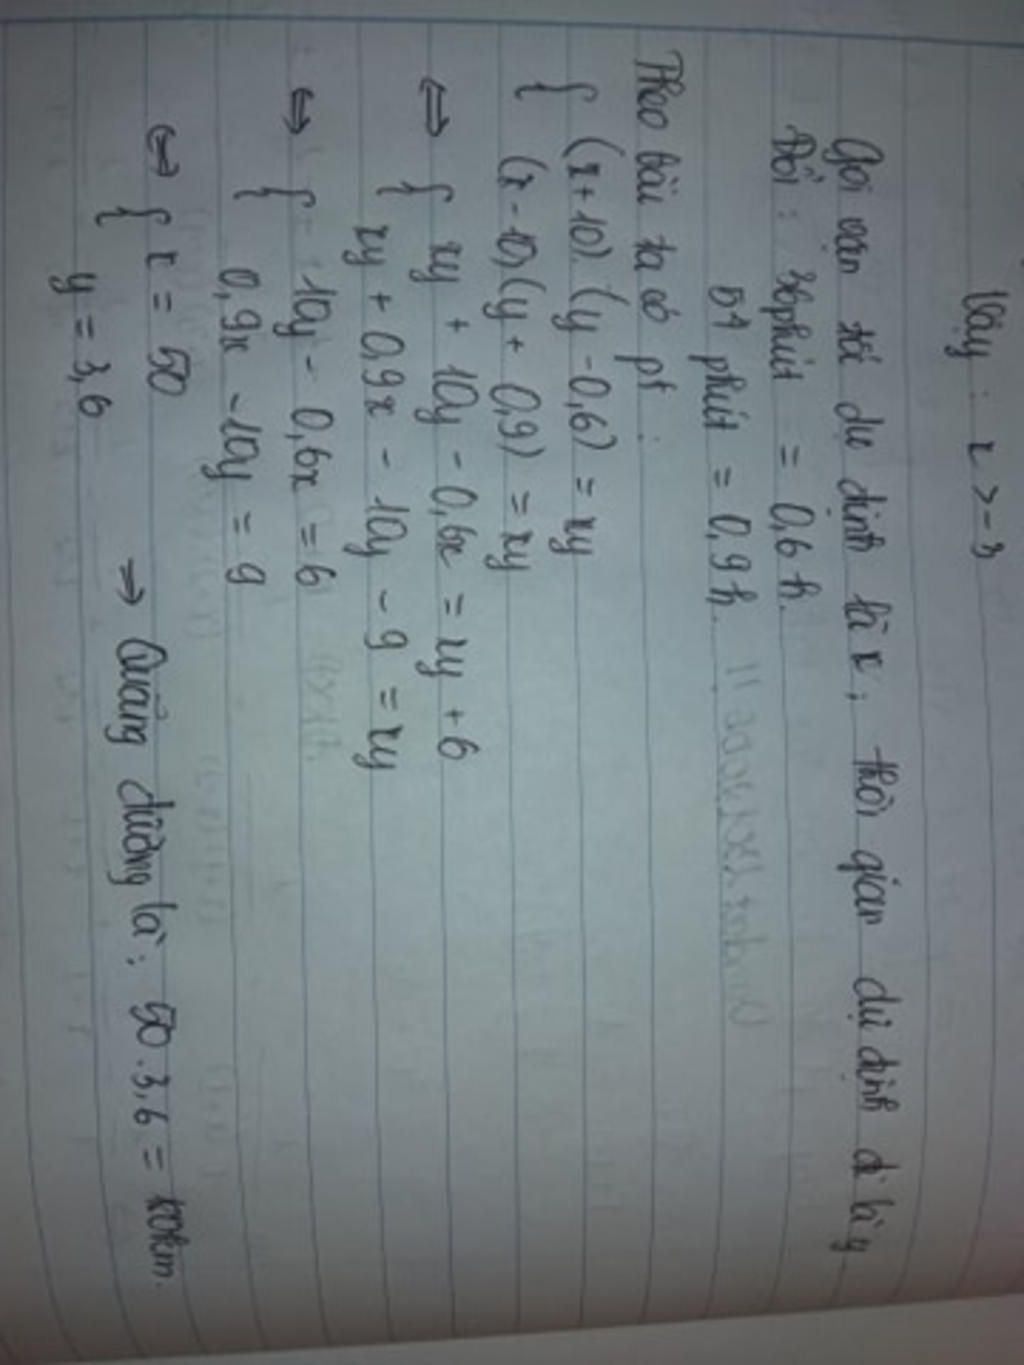 Vậy : x > -3
Gọi vận tốc dự định là x, thời gian dự định đi là y.
Đổi : 36phút = 0,6 h.
54 phút = 0,9 h.
Theo bài ta có pt :
{ (x + 10) . (y - 0,6) = xy
(x - 10) (y + 0,9) = xy
⇔ { xy + 10y - 0,6x = xy + 6
xy + 0,9x - 10y - 9 = xy
⇔ { 10y - 0,6x = 6
0,9x - 10y = 9
⇔ { x = 50
y = 3,6
⇒ Quãng đường là : 50 . 3,6 = km.